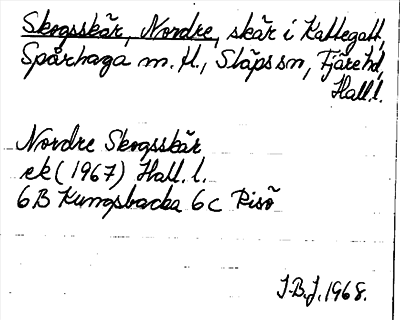 Skogsskär, Nordre, skär i Kattegatt,
Spårhaga m. fl., Släps sn, Fjäre hd,
Hall. l.
Nordre Skogsskär
ek (1967) Hall. l.
6B Kungsbacka 6c Risö
J.B.J. 1968.